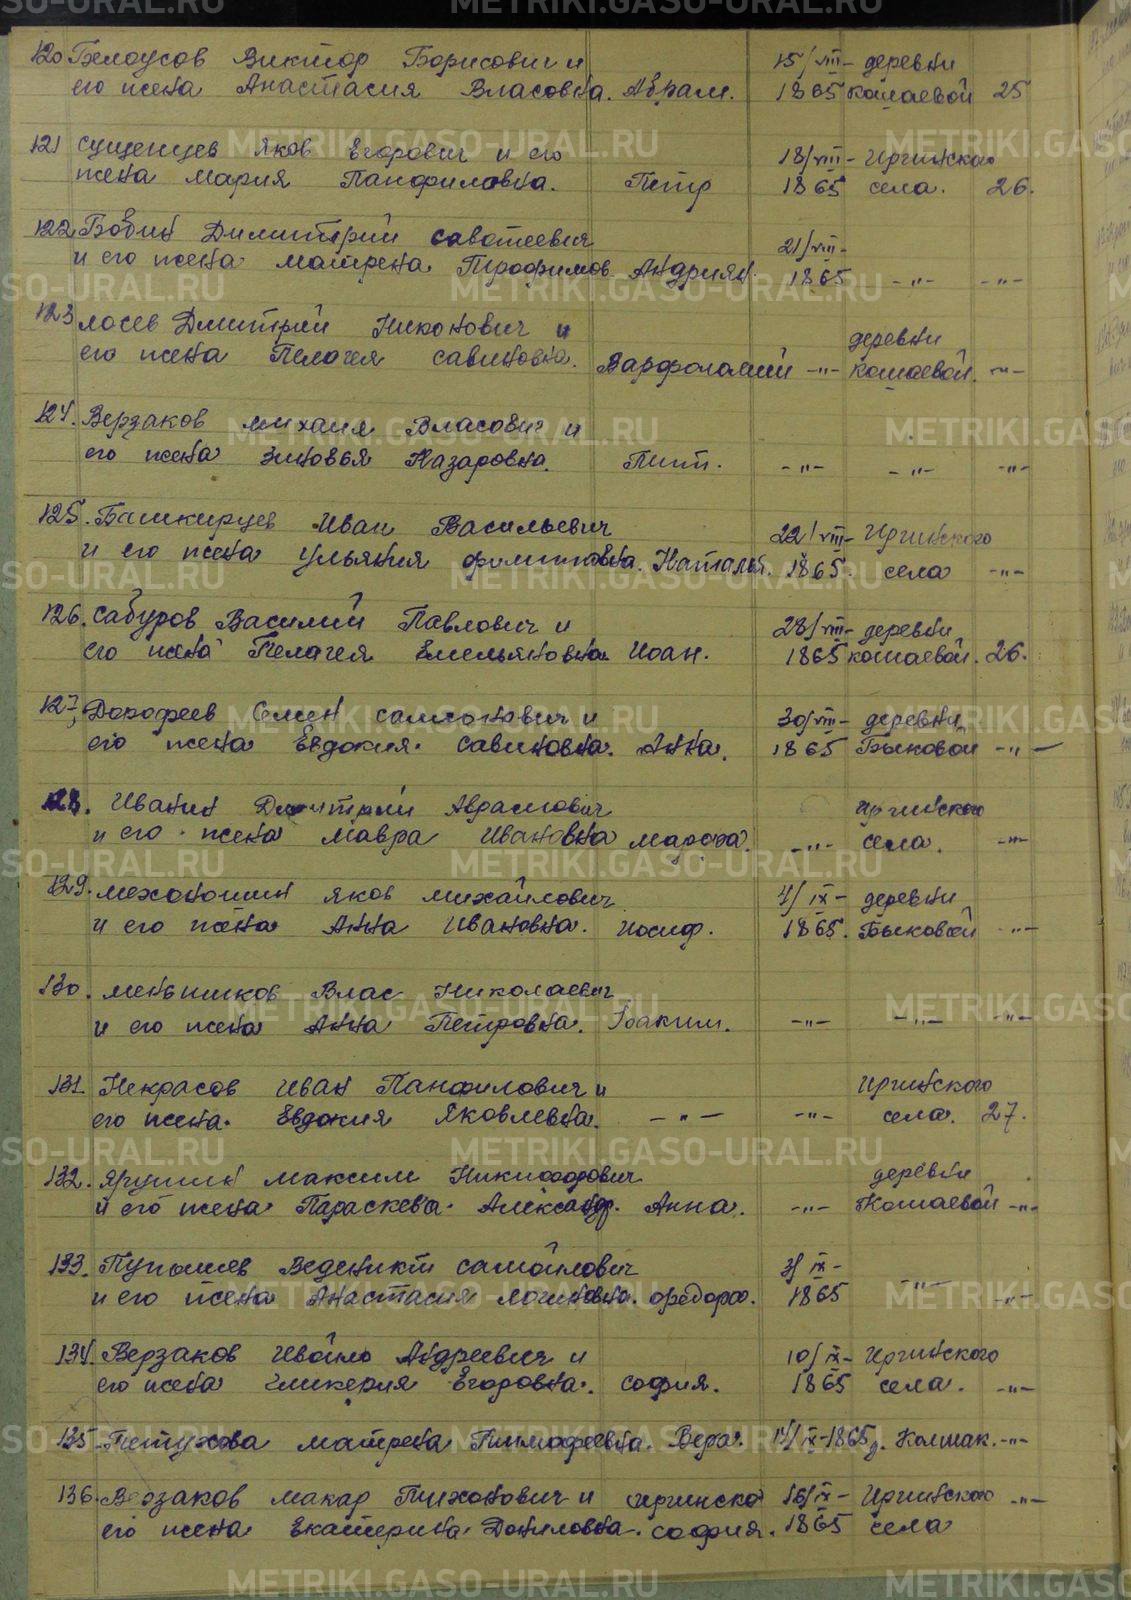 120 Белоусов Виктор Борисович и 15/VIII- деревни
его жена Анастасия Власовна. Абрам. 1865 Кошаевой 25
121 Сущенцев Яков Егорович и его 18/VIII- Иргинского
жена Мария Панфиловна. Петр 1865 села. 26.
122 Бобин Димитрий Саватеевич 21/VIII-
и его жена Матрена Трофимов. Андриян. 1865 -"- -"-
123 Лосев Дмитрий Никонович и деревни
его жена Пелагея Савиновна. Варфоломий -"- Кошаевой. -"-
124. Верзаков Михаил Власович и
его жена Зиновья Назаровна. Тит. -"- -"- -"-
125. Башкирцев Иван Васильевич 22/VIII- Иргинского
и его жена Ульяния Филипповна. Наталья. 1865. села -"-
126. Сабуров Василий Павлович и 28/VIII- деревни
его жена Пелагея Емельяновна Иоан. 1865 Кошаевой. 26.
127, Дорофеев Семен Самсонович и 30/VIII- деревни
его жена Евдокия Савиновна. Анна. 1865 Быковой -"-
128. Иванин Дмитрий Аврамович Иргинского
и его жена Мавра Ивановна -"- села. -"-
129. Механошин Яков Михайлович 4/IX- деревни
и его жена Анна Ивановна. Иосиф. 1865. Быковой -"-
130. Меньшиков Влас Николаевич
и его жена Анна Петровна. Иоаким. -"- -"- -"-
131. Некрасов Иван Панфилович и Иргинского
его жена Евдокия Яковлевна. -"- -"- села. 27.
132. Ярушин Максим Никифорович деревни
и его жена Параскева Александр. Анна. -"- Кошаевой -"-
133. Пупышев Ведениктт Самойлович IX-
и его жена Анастасия Логиновна. Федора. 1865 -"- -"-
134. Верзаков Ивойло Андреевич и 10/IX- Иргинского
его жена Гликерия Егоровна. София. 1865 села. -"-
135. Петухова Матрена Тимофеевна. Вера. 14/IX-1865 д. Колмак. -"-
136. Верзаков Макар Тихонович и иргинско 16/IX- Иргинского -"-
его жена Екатерина Даниловна. София. 1865 села
METRIKI.GASO-URAL.RU